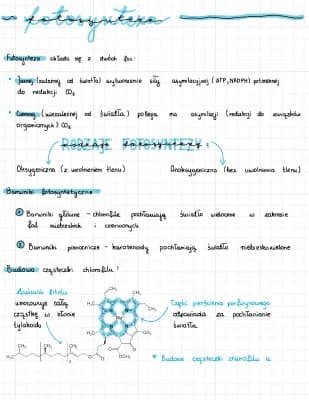 fotosynteza
Fotosynteza składa się z dwóch faz:
• Jasnej (zależnej od światła) wytworzenie siły asymilacyjnej (ATP, NADPH) potrzebnej
do redukcji CO₂
• Ciemnej (niezależnej od światła) polega na asymilacji (redukcji do związków
organicznych) CO₂
RODZAJE FOTOSYNTEZY:
Oksygeniczna (z uwolnieniem tlenu) Anoksygeniczna (bez uwolnienia tlenu)
Barwniki fotosyntetyczne
① Barwniki główne - chlorofile pochłaniają światło widoczne w zakresie
fal niebieskich i czerwonych
② Barwniki pomocnicze - karotenoidy pochłaniają światło niebieskozielone
Budowa cząsteczki chlorofilu:
Łańcuch fitolu
umocowuje całą
cząstkę w błonie
tylakoidu
Część pierścienia porfirynowego
odpowiada za pochłanianie
światła
* Budowa cząsteczki chlorofilu a